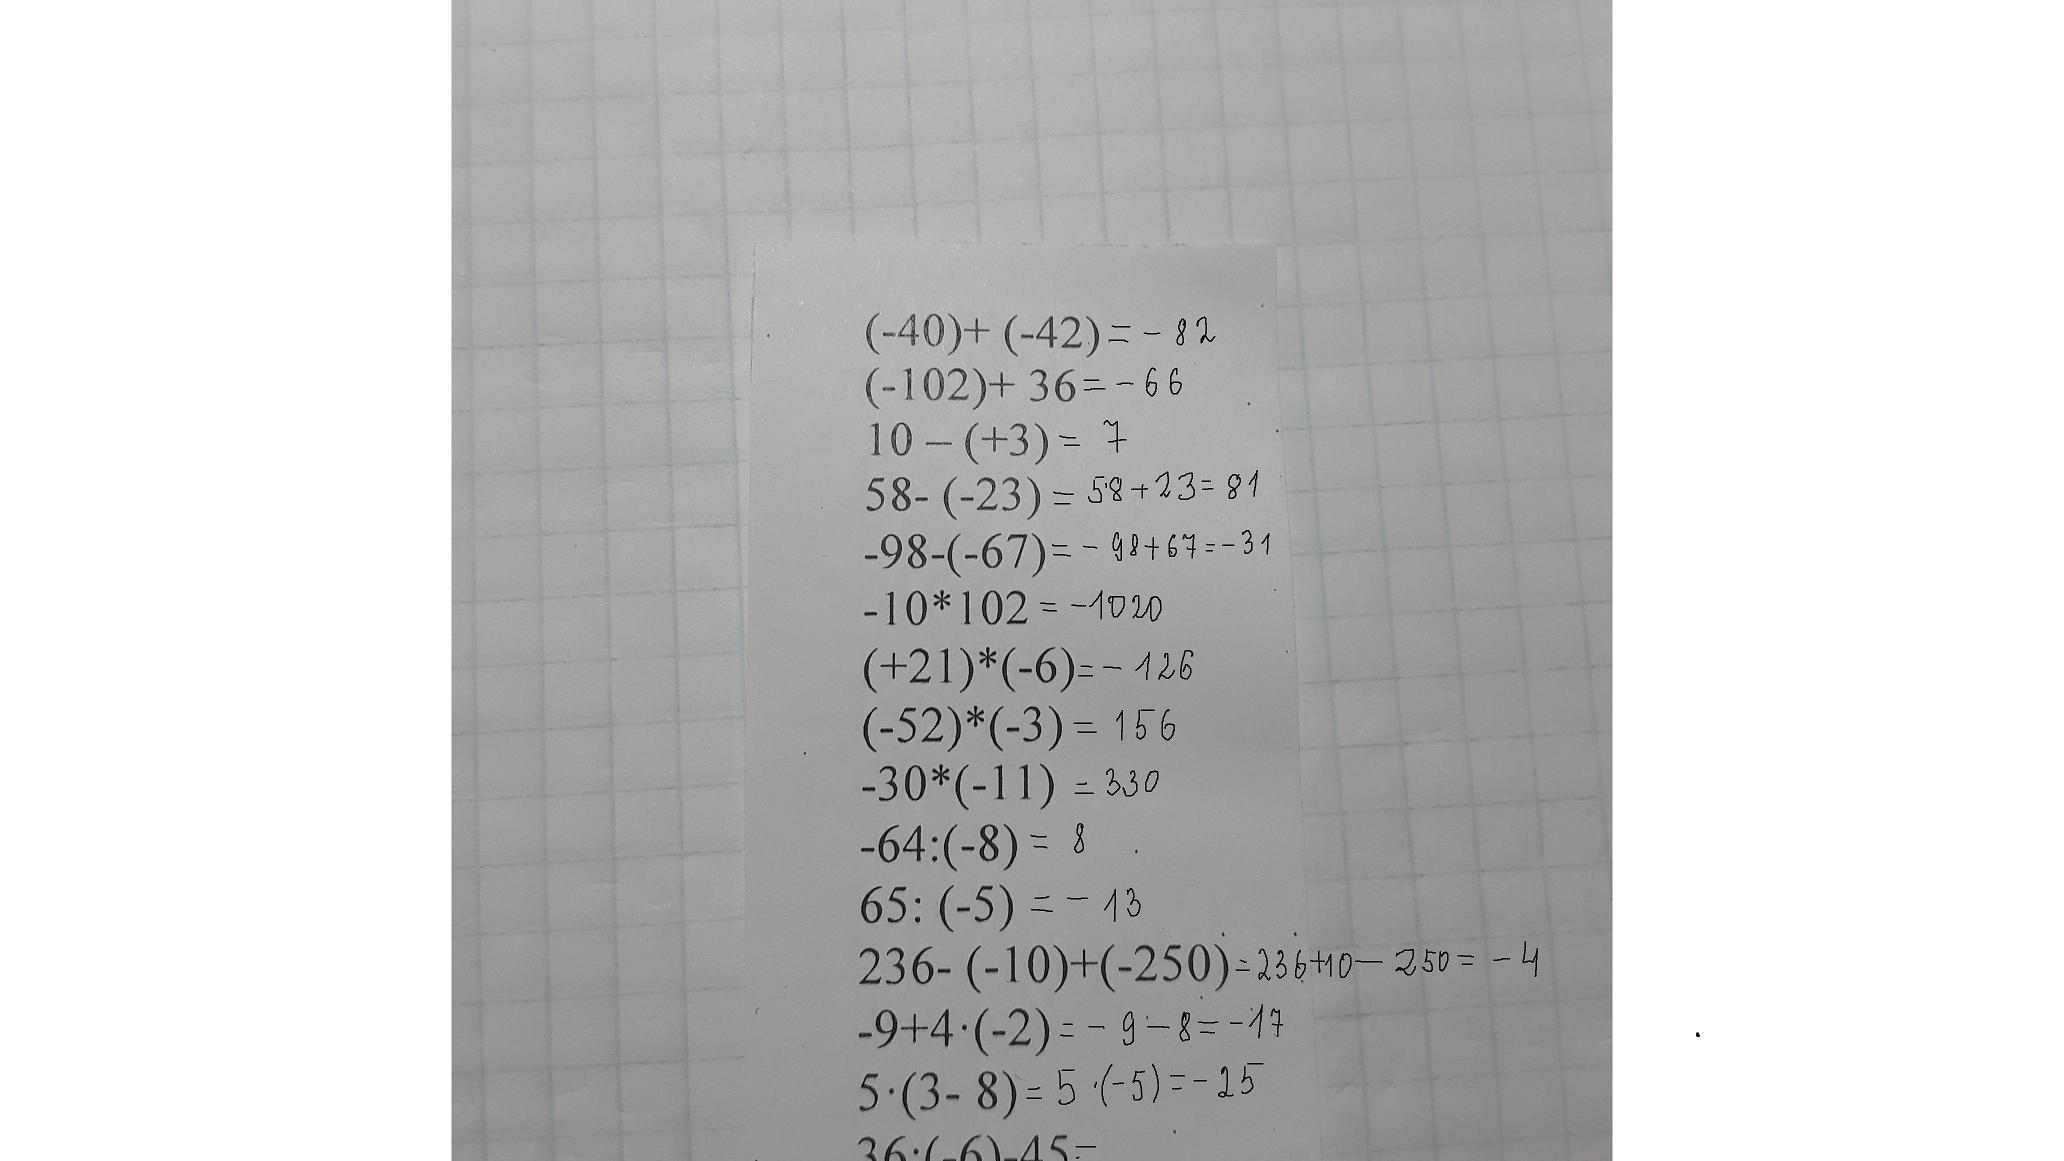 (-40)+ (-42)= - 82
(-102)+ 36= - 66
10 – (+3) = 7
58- (-23) = 58+23= 81
-98-(-67)= - 98+67=-31
-10*102 = -1020
(+21)*(-6)= - 126
(-52)*(-3) = 156
-30*(-11) = 330
-64:(-8) = 8
65: (-5) = - 13
236- (-10)+(-250)=236+10- 250= -4
-9+4·(-2)= - 9-8=-17
5·(3- 8)= 5 ·(-5)=-25
36:(-6)-45=